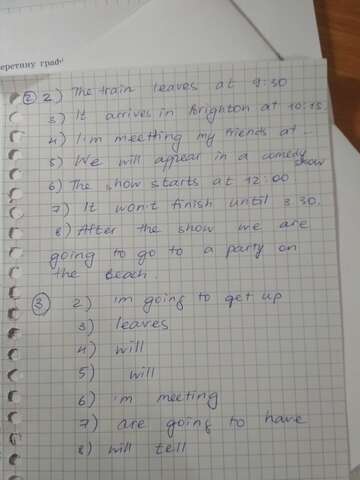 еретину граф
② 2) The train leaves at 9:30
3) It arrives in Brighton at 10:15
4) I'm meetting my friends at ..
5) We will appear in a comedy show
6) The show starts at 12:00
7) It won't finish until 3.30.
8) After the show we are
going to go to a party on
the beach.
③ 2) i'm going to get up
3) leaves
4) will
5) will
6) i'm meeting
7) are going to have
8) will tell